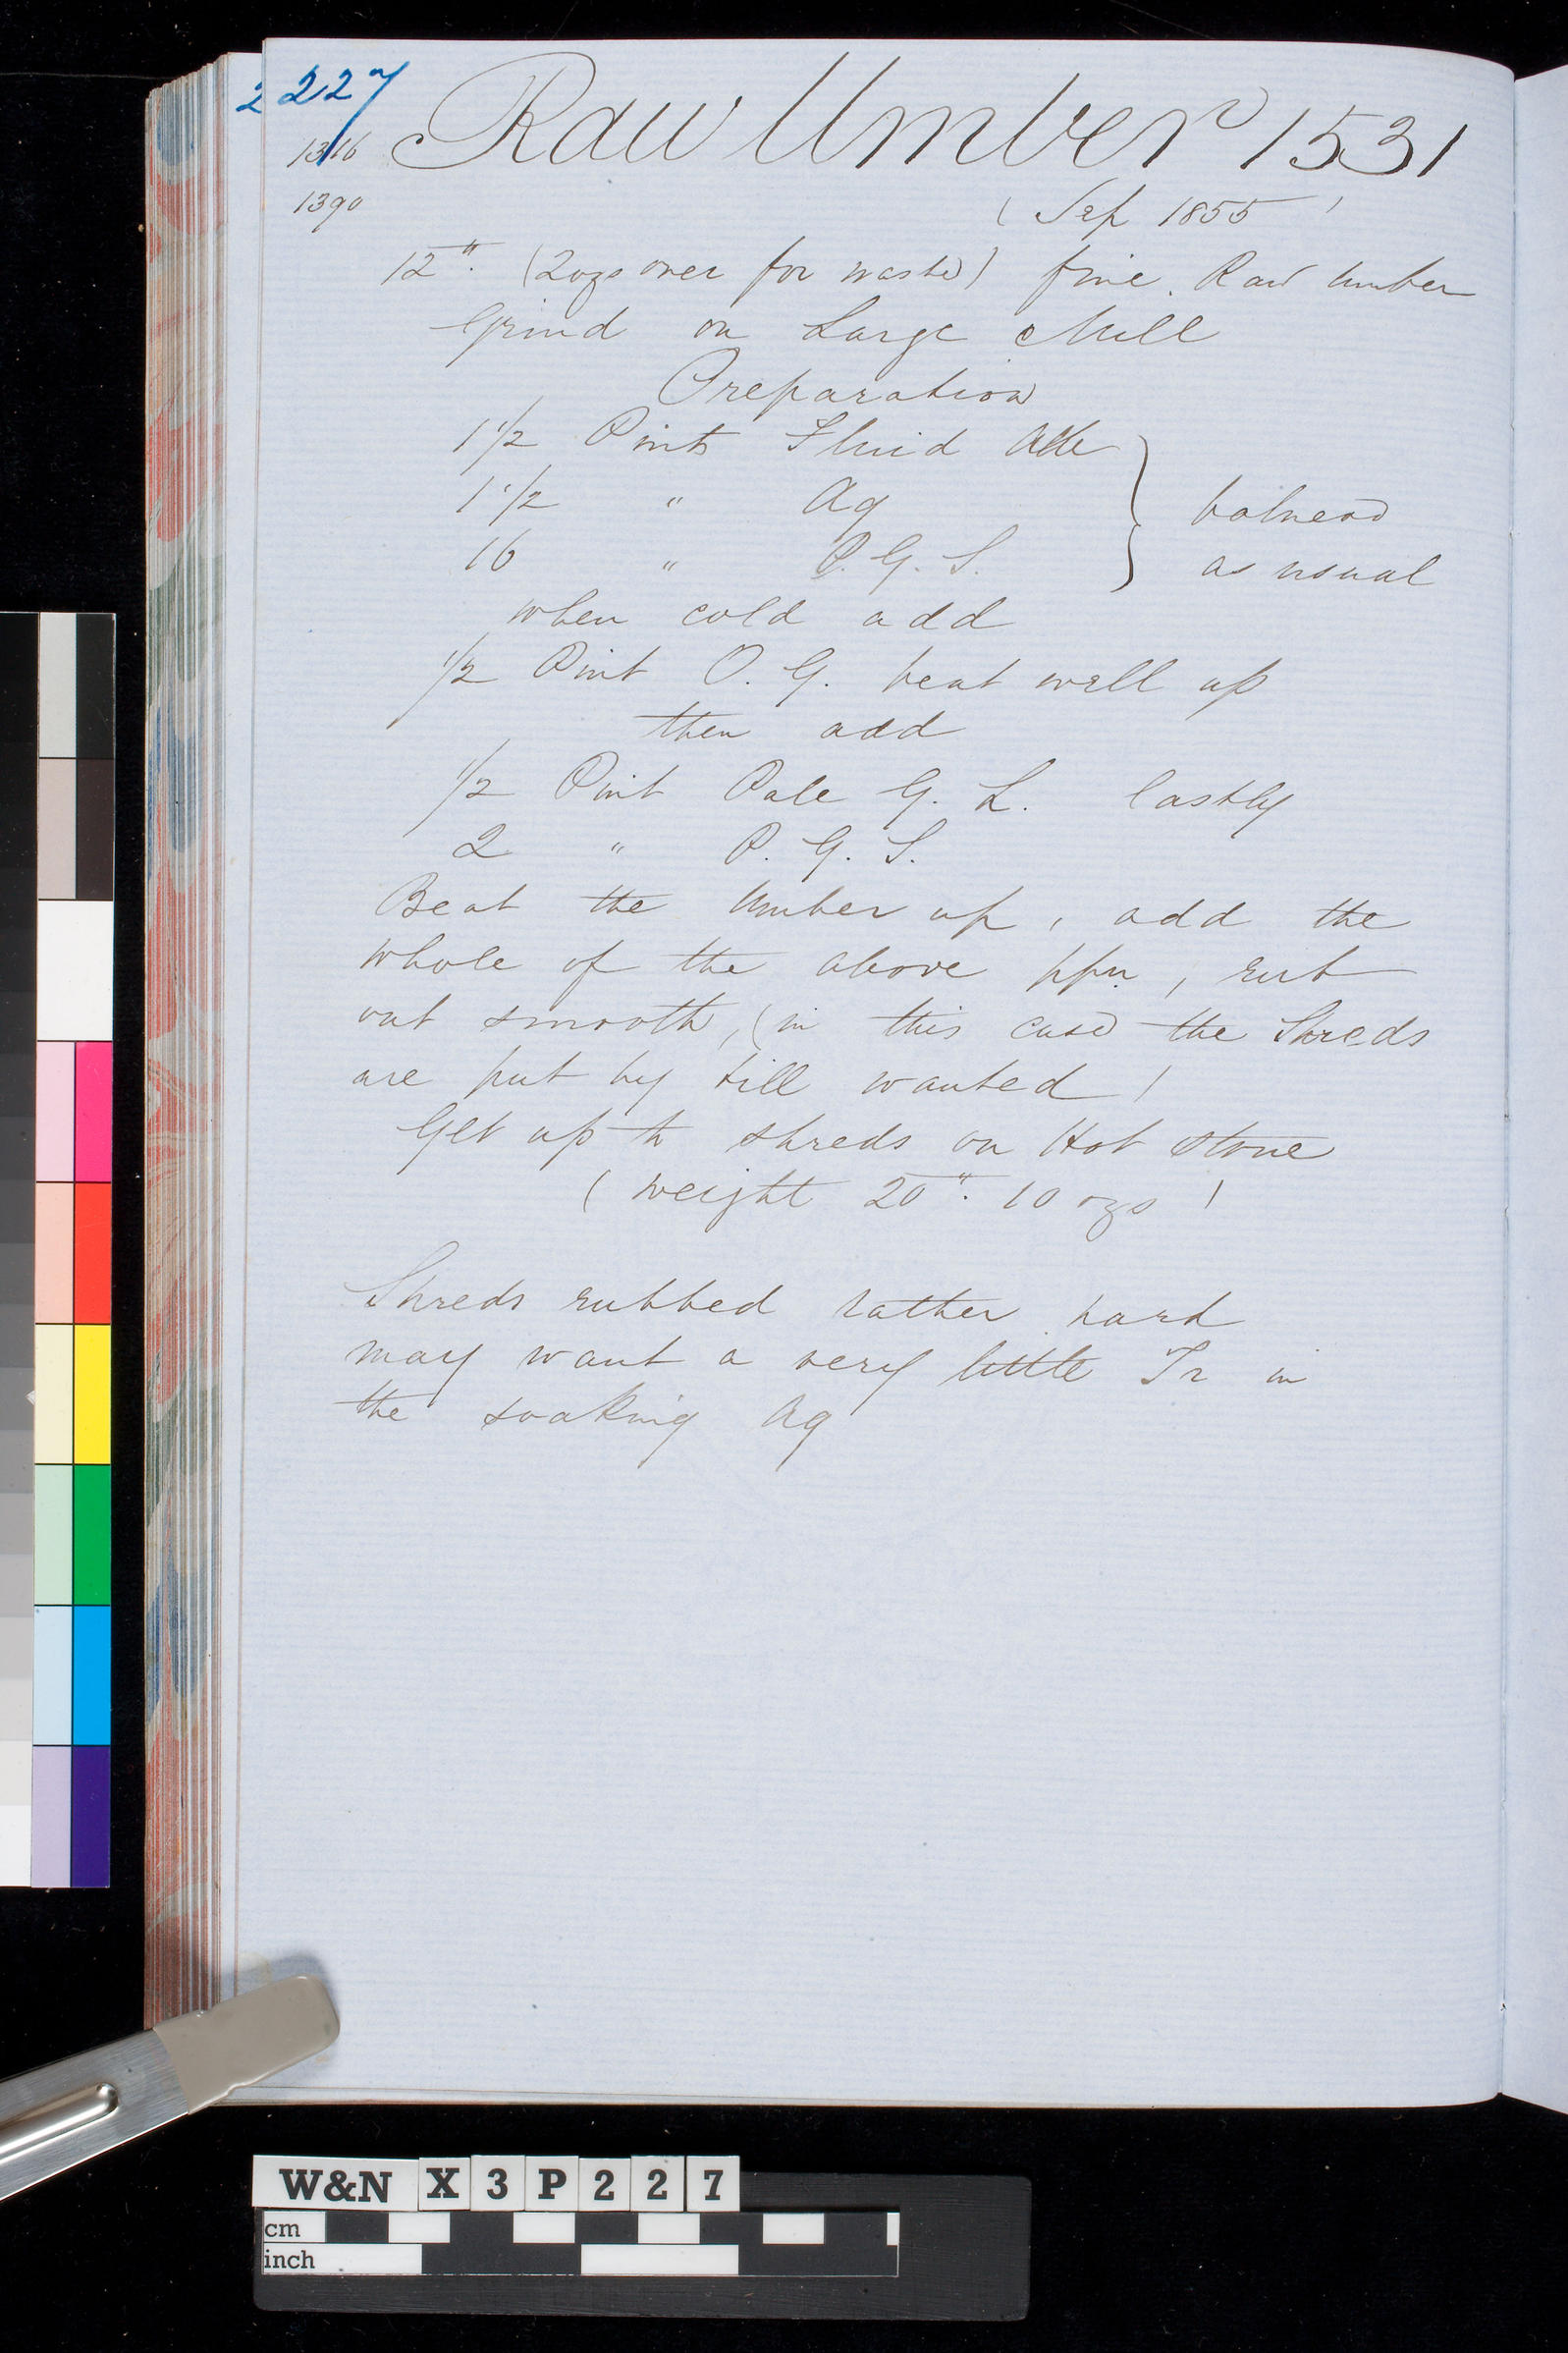 2 227
1316 Raw Umber 1531
1390
( Sep 1855 )
12". (2ozs over for waste) fine. Raw Umber
Grind on Large Mill
Preparation
1 1/2 Pints Fluid
1 1/2 " Aq
16 " P. G. S.
balneo
as usual
when cold add
1/2 Pint O. G. beat well up
then add
1/2 Pint Pale G. L. lastly
2 " P. G. S.
Beat the Umber up, add the
whole of the above ppn, rub
out smooth, (in this case the Shreds
are put by till wanted)
Get up to shreds on Hot stone
( weight 20". 10 ozs )
Shreds rubbed rather hard
may want a very little Tr in
the soaking Aq
W&N X 3 P 2 2 7
cm
inch